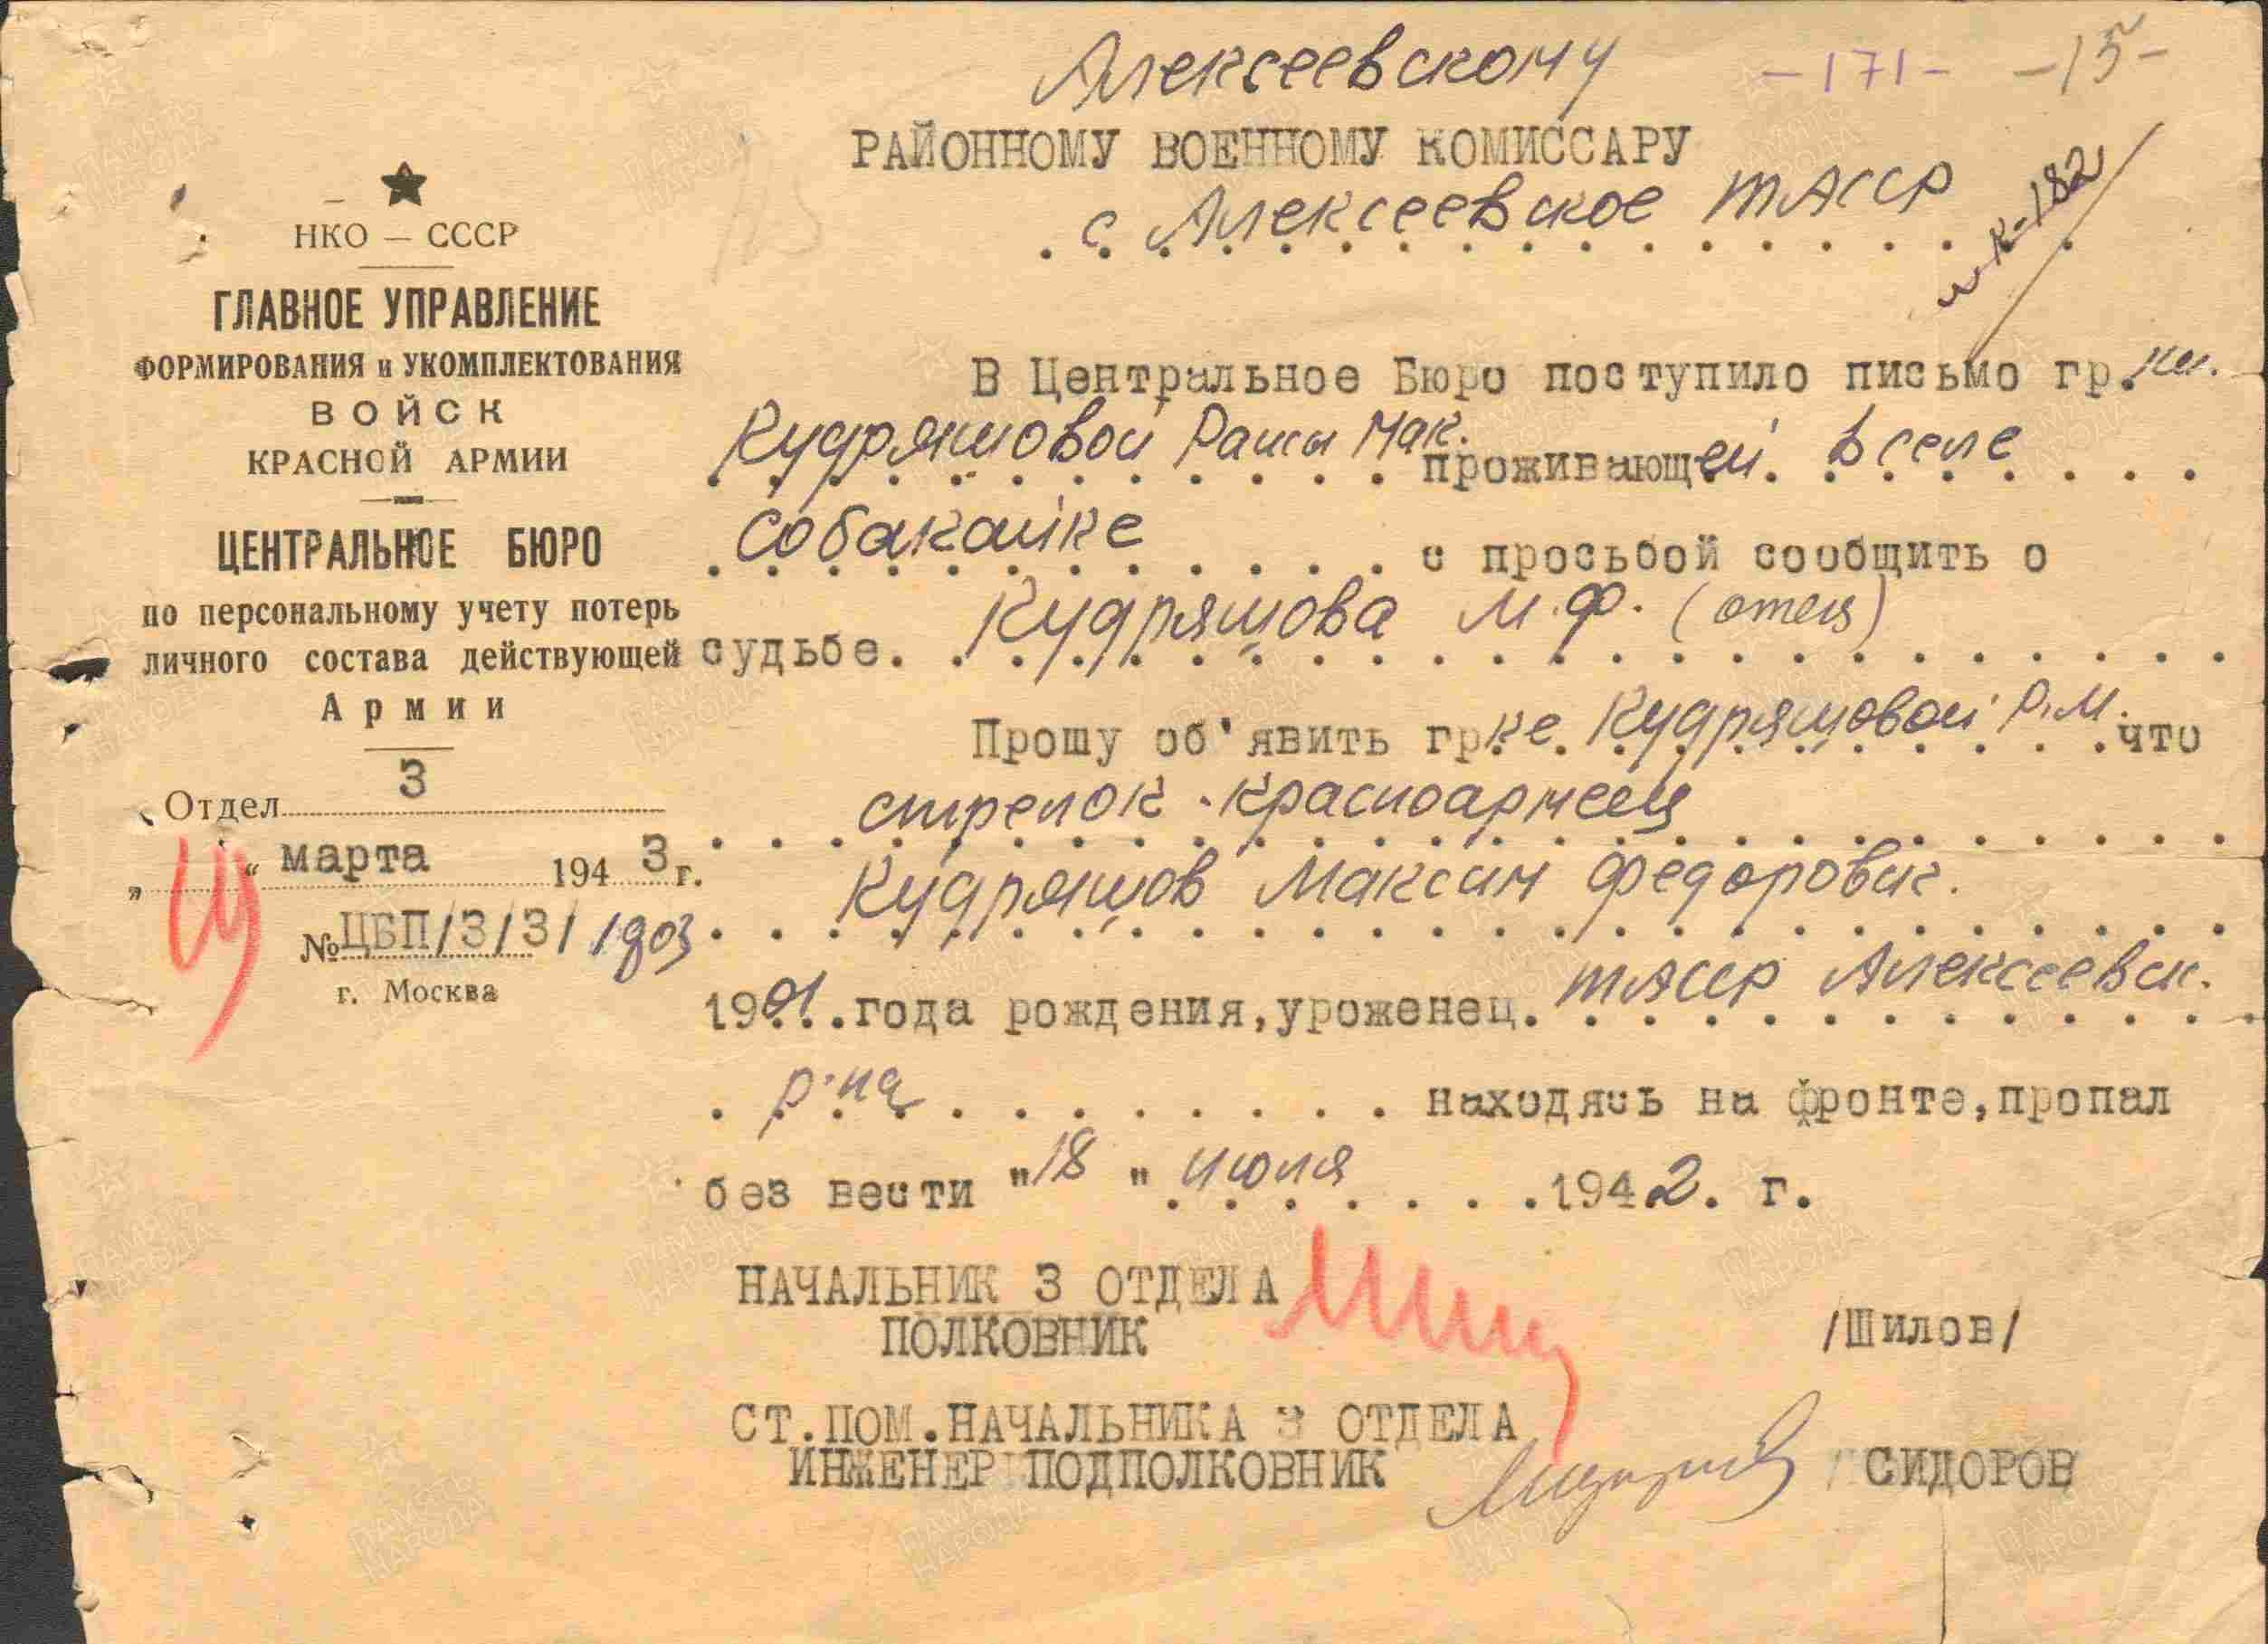 Алексеевскому
-171- -15-
РАЙОННОМУ ВОЕННОМУ КОМИССАРУ
с Алексеевское ТАССР
к-182
НКО — СССР
ГЛАВНОЕ УПРАВЛЕНИЕ
ФОРМИРОВАНИЯ и УКОМПЛЕКТОВАНИЯ
ВОЙСК
КРАСНОЙ АРМИИ
ЦЕНТРАЛЬНОЕ БЮРО
по персональному учету потерь
личного состава действующей
Армии
Отдел 3
„ “ марта 1943 г.
№ ЦБП/3/3/1903
г. Москва
В Центральное Бюро поступило письмо гр.ки.
Кудряшовой Раисы Мак. проживающей в селе
Собакайке с просьбой сообщить о
судьбе. Кудряшова М.Ф. (отец)
Прошу об'явить гр.ке. Кудряшовой Р.М. что
стрелок-красноармеец
Кудряшов Максим Федорович.
1901 года рождения, уроженец. ТАССР Алексеевск.
р-на находясь на фронте, пропал
без вести "18" июля 1942. г.
НАЧАЛЬНИК 3 ОТДЕЛА
ПОЛКОВНИК /Шилов/
СТ.ПОМ.НАЧАЛЬНИКА 3 ОТДЕЛА
ИНЖЕНЕР ПОДПОЛКОВНИК /СИДОРОВ
ПАМЯТЬ НАРОДА